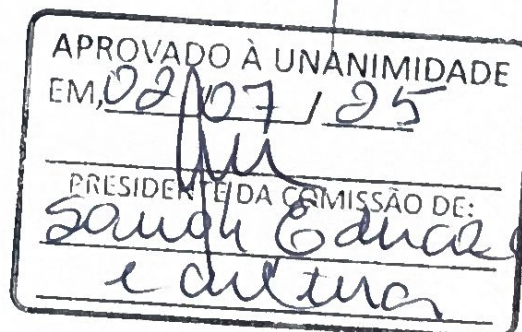 APROVADO À UNANIMIDADE
EM, 02 / 07 / 25
PRESIDENTE DA COMISSÃO DE:
Saude Educa
e cultura